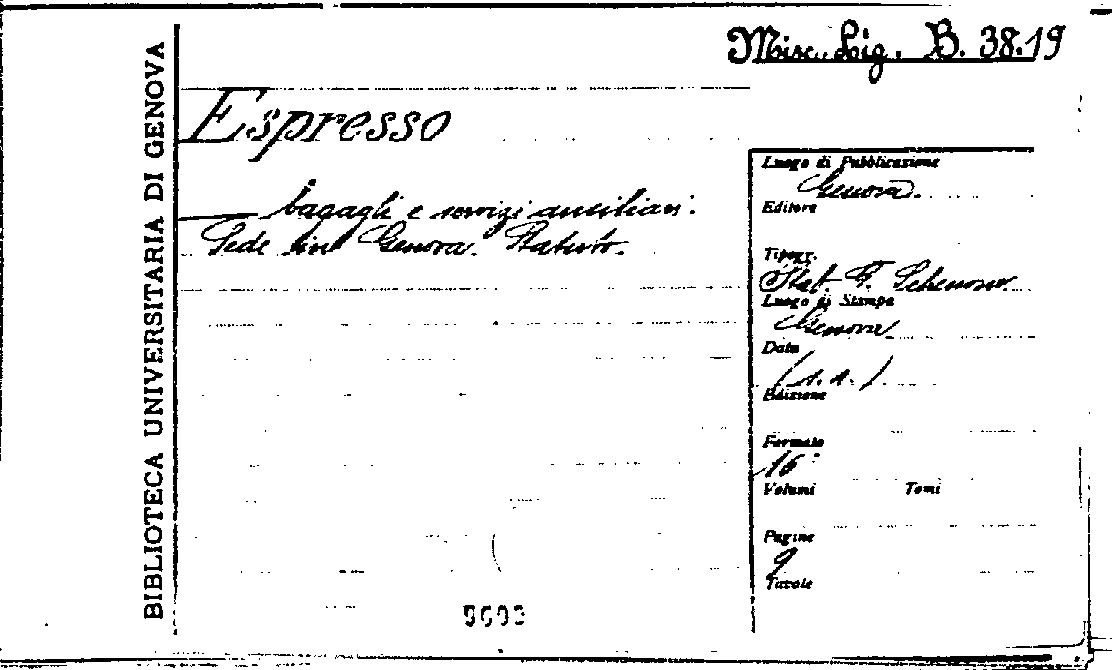 Misc. Lig. B. 38.19
BIBLIOTECA UNIVERSITARIA DI GENOVA
Espresso
bagagli e servizi ausiliari.
Sede in Genova. Statuto.
Luogo di Pubblicazione
Genova.
Editore
Tipogr.
Stab. F. Schenone
Luogo di Stampa
Genova
Data
(s. a.)
Edizione
Formato
16°
Volumi Tomi
Pagine
9
Tavole